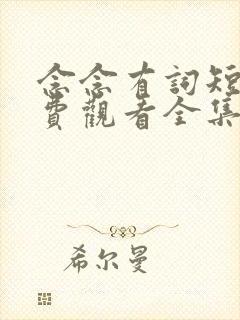 念念有詞短
費觀看全集
希尔曼